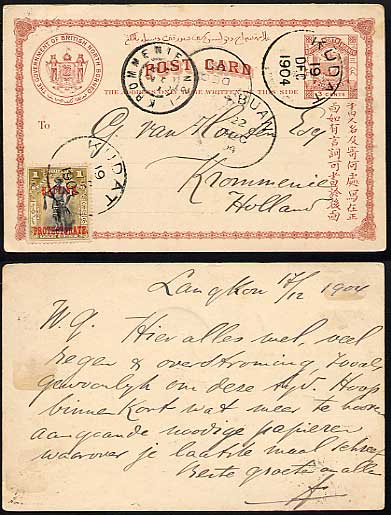 THE GOVERNMENT OF BRITISH NORTH BORNEO
POST CARD
THE ADDRESS ONLY TO BE WRITTEN ON THIS SIDE
KROMMENIE
KUDAT
19
DEC
1904
LABUAN
22
DEC
To
G. van Esq
Krommenie
Holland
KUDAT
19
1
BRITISH
PROTECTORATE
Langkon 17/12 1904
W. G. Hier alles wel, veel
regen & overstrooming, zooals
gewoonlijk om deze tijd. Hoop
binnen kort wat meer te hooren
aangaande noodige papieren
waarover je laatste maal schreef
Beste groeten allen